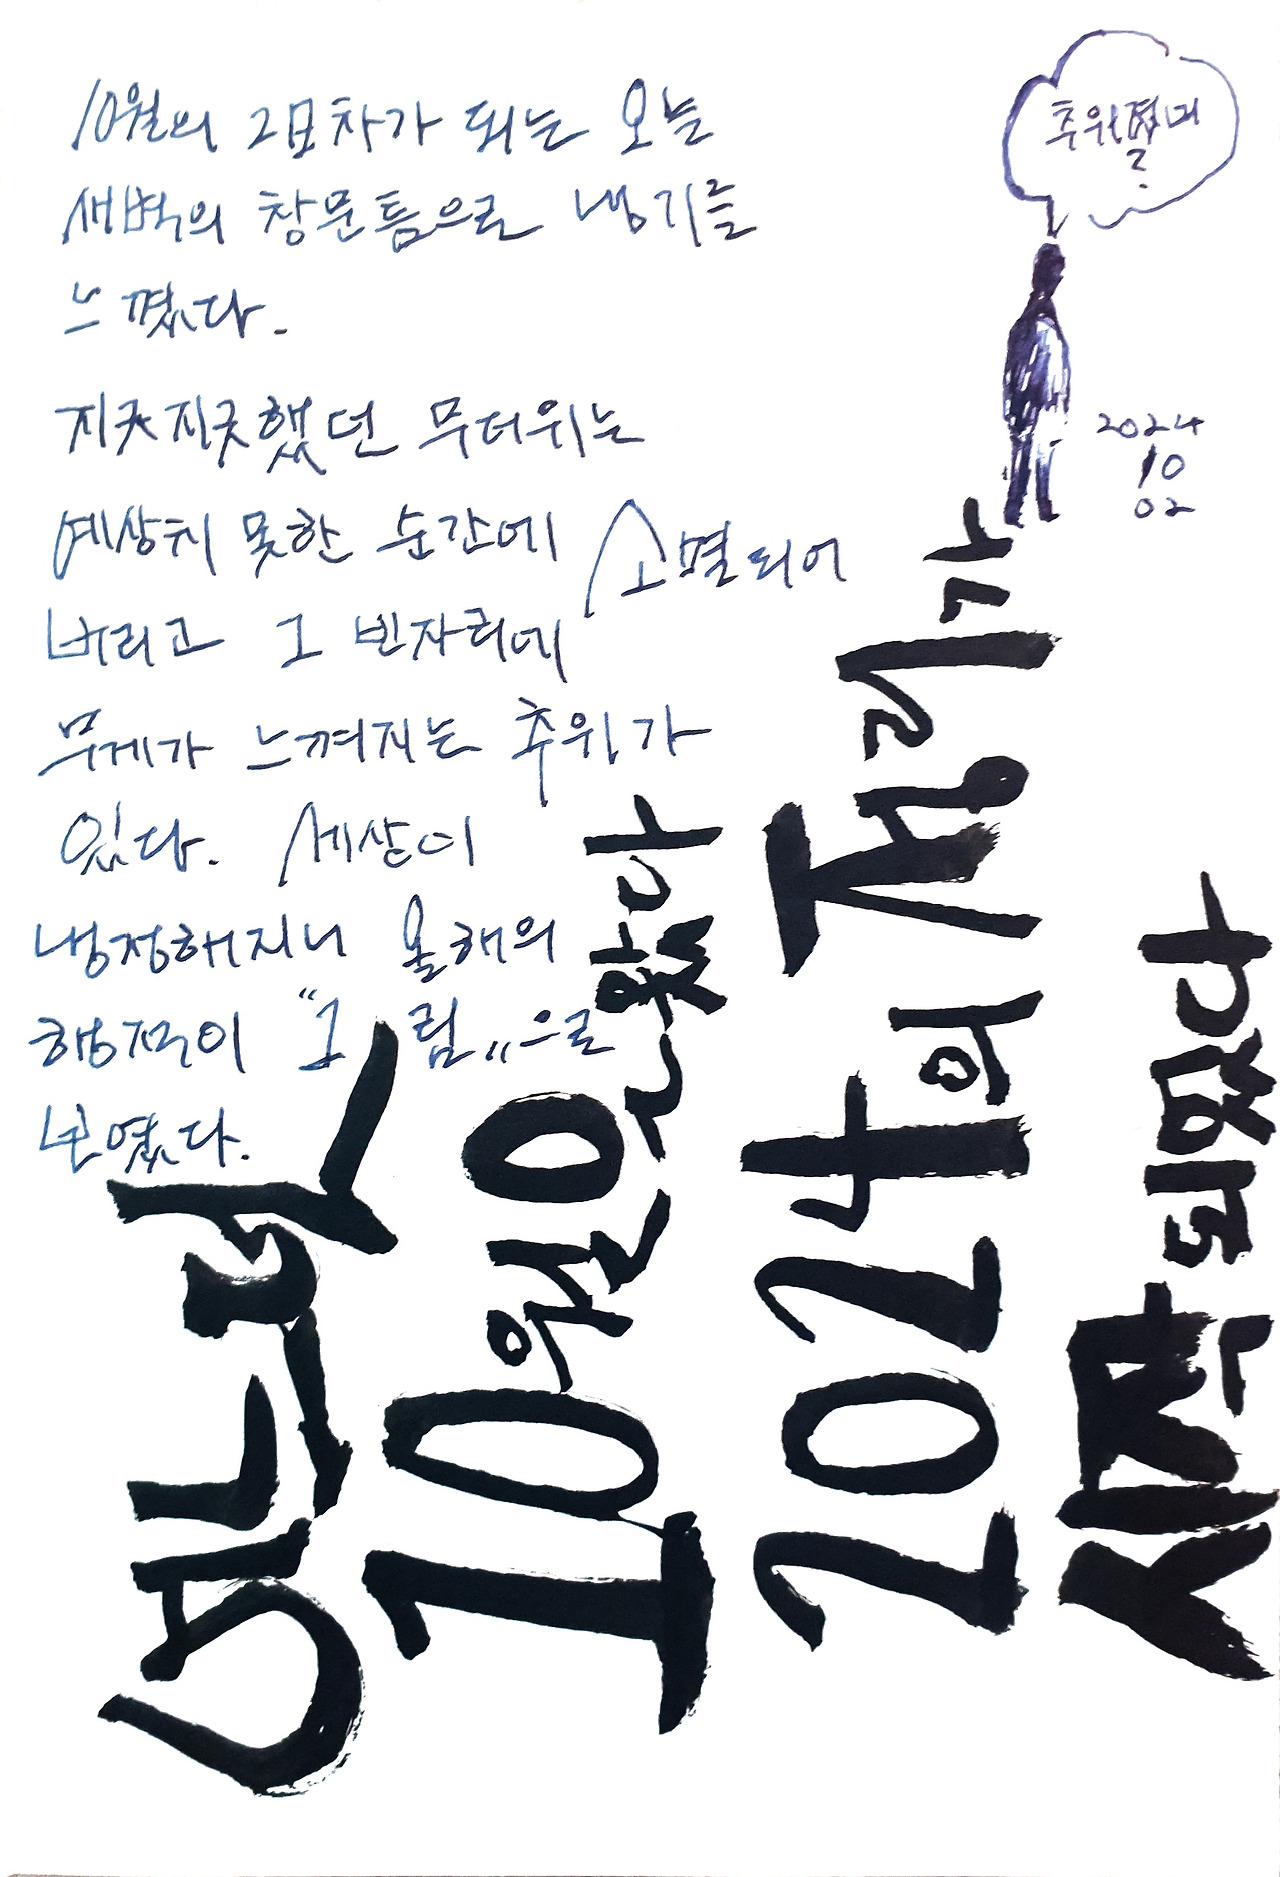 10월의 2日차가 되는 오늘
새벽의 창문틈으로 냉기를
느꼈다.
지긋지긋했던 무더위는
예상치 못한 순간에 소멸되어
버리고 그 빈자리에
무게가 느껴지는 추위가
있다. 세상이
냉정해지니 올해의
행적이 "그림"으로
보였다.
2024
10
02
어느덧
10월 왔다
2024의 정리가
시작되었다